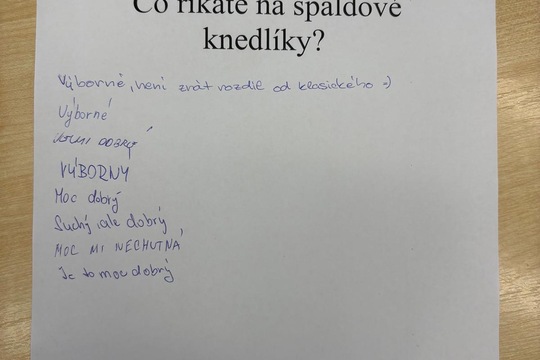 Co říkáte na špaldové
knedlíky?
Výborné, není znát rozdíl od klasického :)
Výborné
VELMI DOBRÝ
VÝBORNÝ
Moc dobrý
Suchý, ale dobrý
MOC MI NECHUTNÁ
Je to moc dobrý